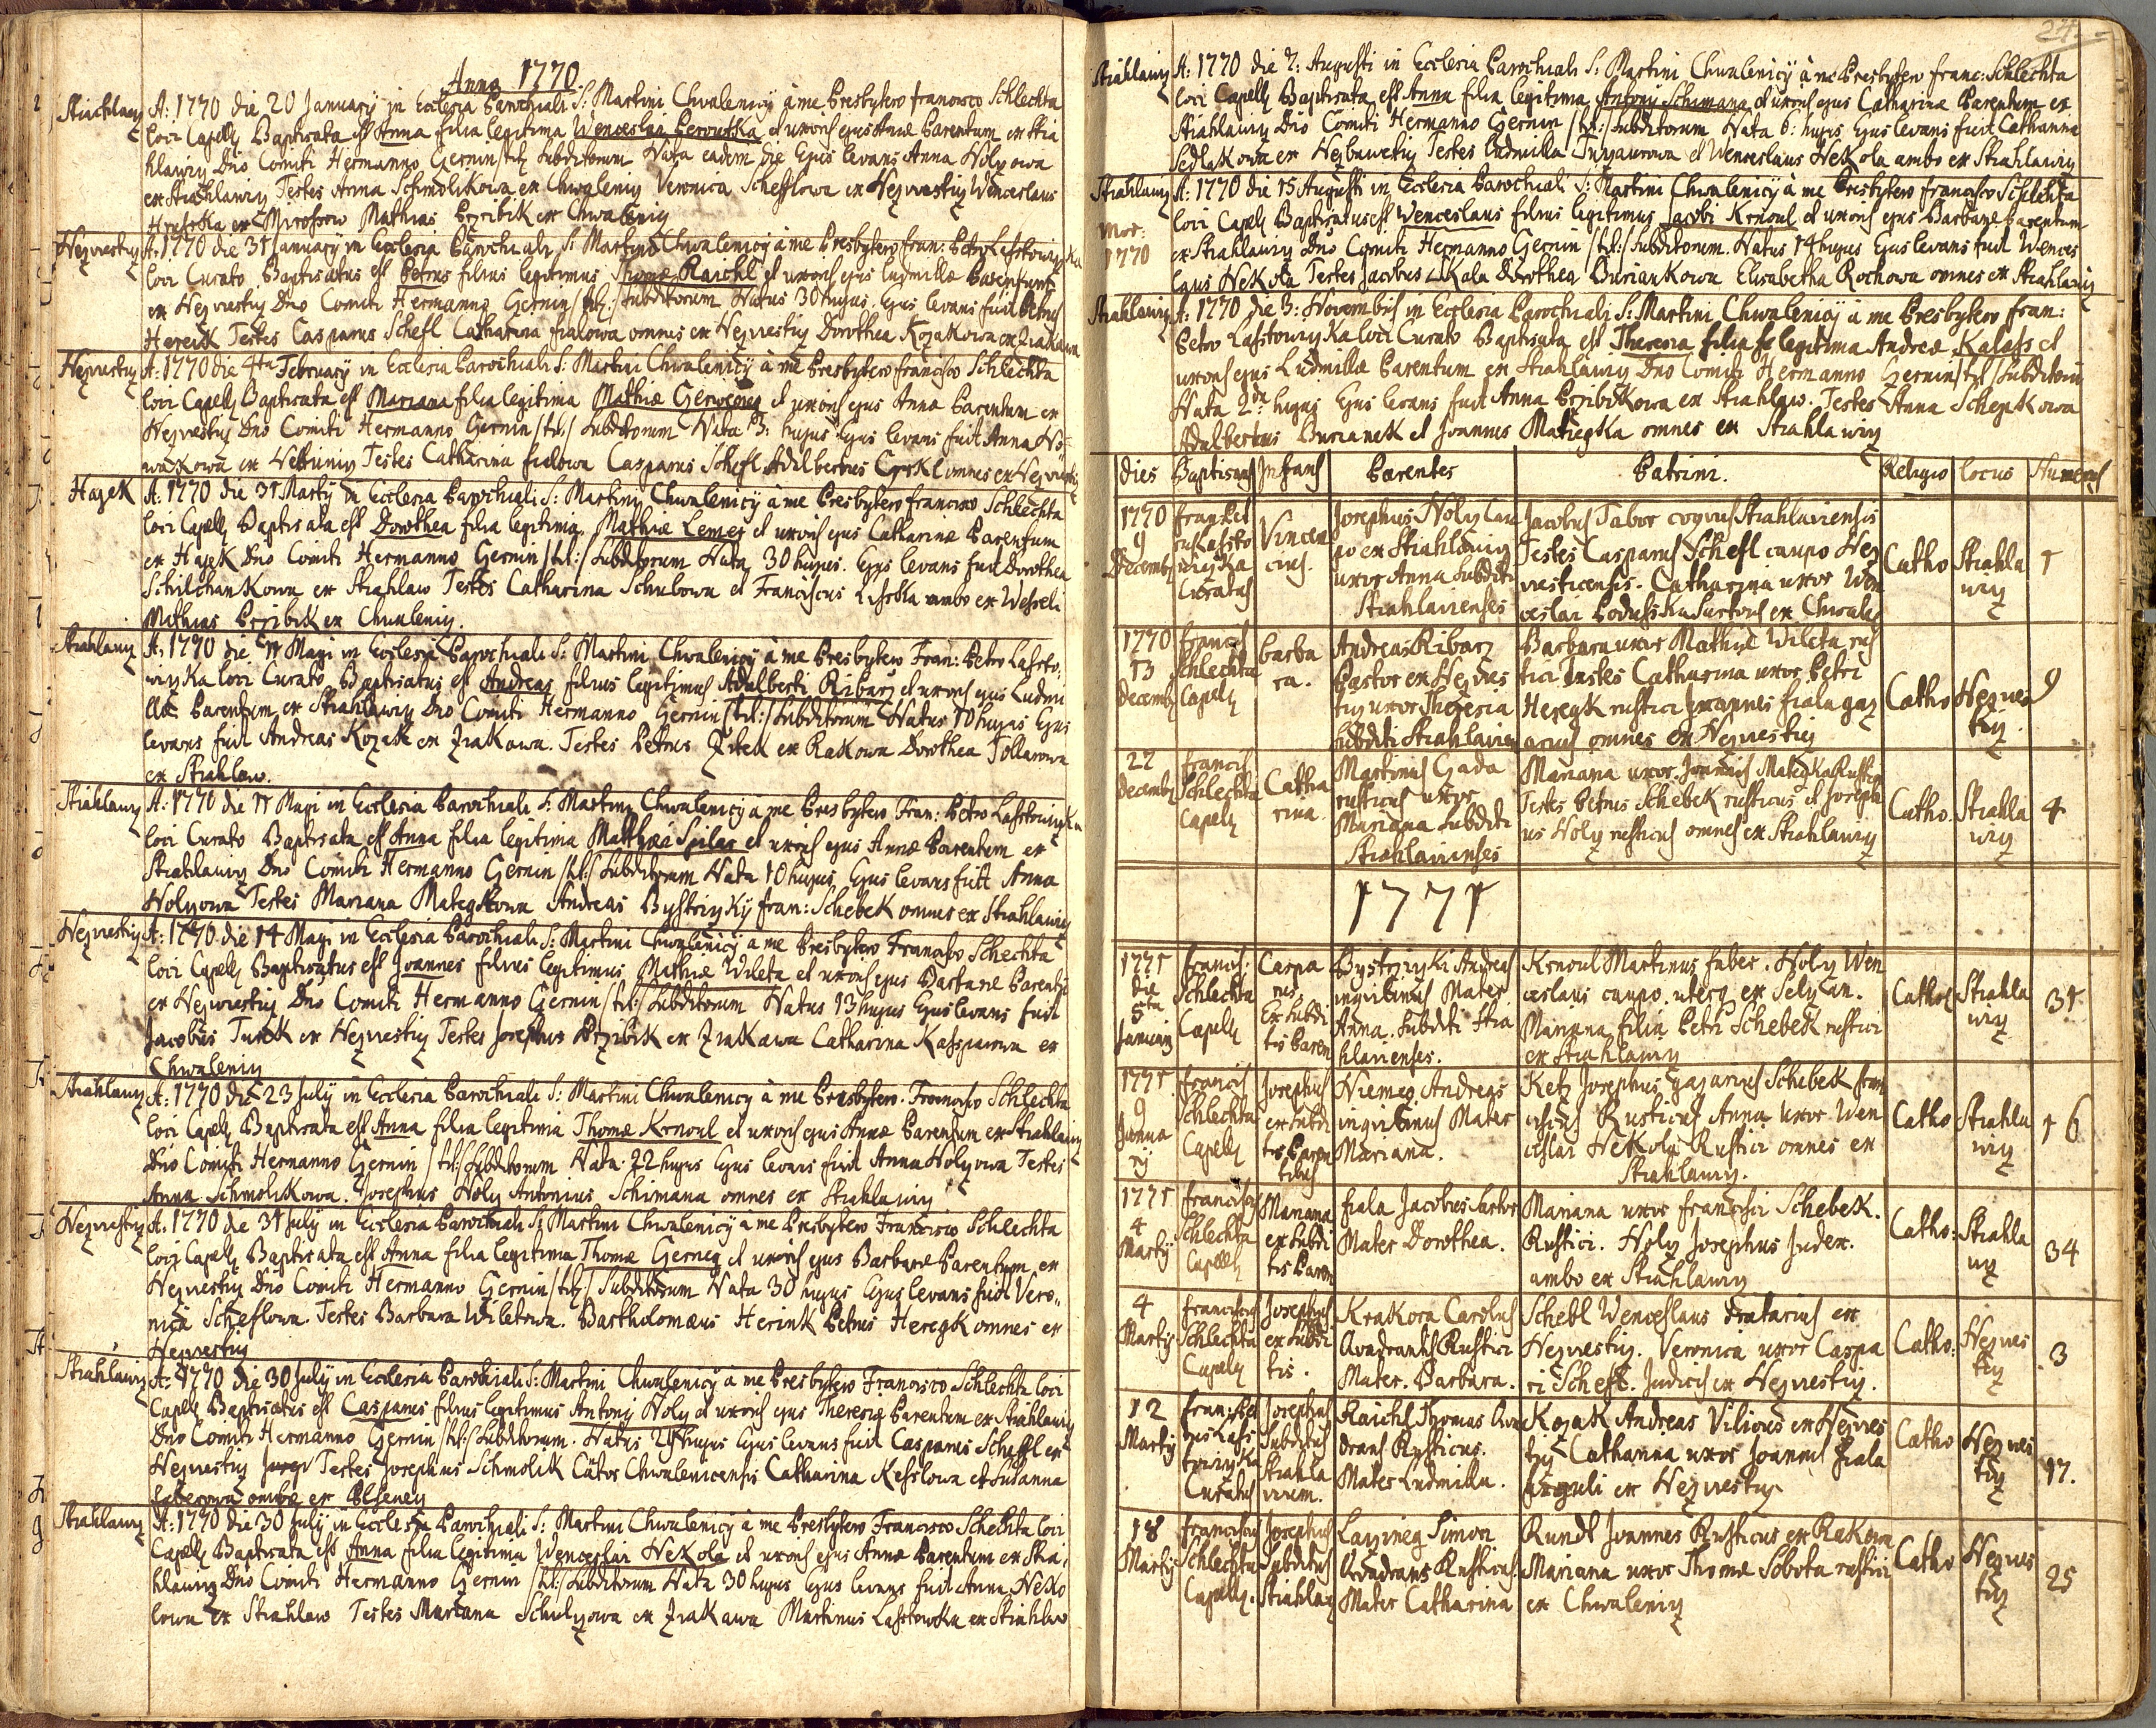 Anno 1770.
Strahlawiz A: 1770 die 20 January in Ecclesia Parochiali S: Martini Chwalenicij à me Presbytero Francisco Schlechta
loci Capell Baptisata est Anna filia legitima Wenceslai Peroutka et uxoris ejus Annæ Parentum ex Stra
hlawiz Dno Comiti Hermanno Gernin /tit:/ Subditorum Nata eadem die Ejus levans Anna Holyowa
ex Strahlawiz Testes Anna Schmolikowa ex Chwaleniz Veronica Schefflowa ex Nezwestiz Wenceslaus
ex Mirossow Mathias Przibik ex Chwaleniz
Nezwestiz A: 1770 die 31 January in Ecclesia Parochiali S: Martini Chwalenicij à me Presbytero Fran: Petro Lasstowizka
loci Curato Baptisatus est Petrus filius legitimus Thomæ Raichl et uxoris ejus Ludmillæ Parentum
ex Nezwestiz Dno Comiti Hermanno Gernin /tit:/ Subditorum Natus 30 hujus. Ejus levans fuit Petrus
Hereik Testes Casparus Schefl Catharina Fialowa omnes ex Nezwestiz Dorothea Kozakowa ex Zrakawa
Nezwestiz A: 1770 die 4ta February in Ecclesia Parochiali S: Martini Chwalenicij à me Presbytero Francisco Schlechta
loci Capell Baptisata est Mariana filia legitima Mathiæ Gerweney et uxoris ejus Annæ Parentum ex
Nezwestiz Dno Comiti Hermanno Gernin /tit:/ Subditorum Nata 3: hujus Ejus levans fuit Anna No
wakowa ex Nettuniz Testes Catharina Fialowa Casparus Schefl Adalbertus omnes ex Nezwestiz
Hagek A: 1770 die 31 Marty in Ecclesia Parochiali S: Martini Chwalenicij à me Presbytero Francisco Schlechta
loci Capell Baptisata est Dorothea filia legitima Mathiæ Lemez et uxoris ejus Catharinæ Parentum
ex Hagek Dno Comiti Hermanno Gernin /tit:/ Subditorum Nata 30 hujus. Ejus levans fuit Dorothea
Schilchankowa ex Strahlaw Testes Catharina Schubowa et Franciscus Lisska ambo ex Wesseli
Mathias Przibik ex Chwaleniz.
Strahlawiz A: 1770 die 11 Maji in Ecclesia Parochiali S: Martini Chwalenicij à me Presbytero Fran: Petro Lassto-
wizka loci Curato Baptisatus est Andreas filius legitimus Adalberti Ribarz et uxoris ejus Ludmi
llæ Parentum ex Strahlawiz Dno Comiti Hermanno Gernin /tit:/ Subditorum Natus 10 hujus Ejus
levans fuit Andreas Kozak ex Zrakawa. Testes Petrus Zitek ex Rakowa Dorothea Tollarowa
ex Strahlaw.
Strahlawiz A: 1770 die 11 Maji in Ecclesia Parochiali S: Martini Chwalenicij à me Presbytero Fran: Petro Lasstowizka
loci Curato Baptisata est Anna filia legitima Matthæi Spilar et uxoris ejus Annæ Parentum ex
Strahlawiz Dno Comiti Hermanno Gernin /tit:/ Subditorum Nata 10 hujus Ejus levans fuit Anna
Holyowa Testes Mariana Mategkowa Andreas Bystrizky Fran: Schebek omnes ex Strahlawiz
Nezwestiz A: 1770 die 14 Maji in Ecclesia Parochiali S: Martini Chwalenicij à me Presbytero Francisco Schlechta
loci Capell Baptisatus est Joannes filius legitimus Mathiæ Wileta et uxoris ejus Barbaræ Parentu
ex Nezwestiz Dno Comiti Hermanno Gernin /tit:/ Subditorum Natus 13 hujus Ejus levans fuit
Jacobus Turek ex Nezwestiz Testes Josephus Przibik ex Zrakawa Catharina Kassparowa ex
Chwaleniz
Strahlawiz A: 1770 die 23 July in Ecclesia Parochiali S: Martini Chwalenicij à me Presbytero Francisco Schlechta
loci Capell Baptisata est Anna filia legitima Thomæ Krnoul et uxoris ejus Annæ Parentum ex Strahlawiz
Dno Comiti Hermanno Gernin /tit:/ Subditorum Nata 22 hujus Ejus levans fuit Anna Holyowa Testes
Anna Schmolikowa. Josephus Holy Antonius Schimana omnes ex Strahlawiz
Nezwestiz A: 1770 die 31 July in Ecclesia Parochiali S: Martini Chwalenicij à me Presbytero Francisco Schlechta
loci Capell Baptisata est Anna filia legitima Thomæ Gerneg et uxoris ejus Barbaræ Parentum ex
Nezwestiz Dno Comiti Hermanno Gernin /tit:/ Subditorum Nata 30 hujus Ejus levans fuit Vero,,
nica Scheflowa. Testes Barbara Wiletowa. Bartholomæus Herink Petrus Heregk omnes ex
Nezwestiz
Strahlawiz A: 1770 die 30 July in Ecclesia Parochiali S: Martini Chwalenicij à me Presbytero Francisco Schlechta loci
Capell Baptisatus est Casparus filius legitimus Antonij Holy et uxoris ejus Theresiæ Parentum ex Strahlawiz
Dno Comiti Hermanno Gernin /tit:/ Subditorum. Natus 29 hujus Ejus levans fuit Casparus Scheffl ex
Nezwestiz Testes Josephus Schmolik Cator Chwalenicensis Catharina Kesslowa et Susanna
ambæ ex Plseney
Strahlawiz A: 1770 die 30 July in Ecclesia Parochiali S: Martini Chwalenicij à me Presbytero Francisco Schechta loci
Capell Baptisata est Anna filia legitima Wenceslai Nekola et uxoris ejus Annæ Parentum ex Stra,
hlawiz Dno Comiti Hermanno Gernin /tit:/ Subditorum Nata 30 hujus Ejus levans fuit Anna Neko
lowa ex Strahlaw Testes Mariana Schulzowa ex Zrakawa Martinus Lasstowka ex Strahlaw
24
Strahlawiz A: 1770 die 7: Augusti in Ecclesia Parochiali S: Martini Chwalenicij à me Presbytero Franc: Schlechta
loci Capell Baptisata est Anna filia legitima Antonij Schimana et uxoris ejus Catharinæ Parentum ex
Strahlawiz Dno Comiti Hermanno Gernin /tit:/ Subditorum Nata 6: hujus Ejus levans fuit Catharina
Sedlakowa ex Testes Ludmilla et Wenceslaus Nekola ambo ex Strahlawiz
Strahlawiz A: 1770 die 15 Augusti in Ecclesia Parochiali S: Martini Chwalenicij à me Presbytero Francisco Schlechta
Mor: 1770
loci Capell Baptisatus est Wenceslaus filius legitimus Jacobi Krnoul et uxoris ejus Barbaræ Parentum
ex Strahlawiz Dno Comiti Hermanno Gernin /tit:/ Subditorum. Natus 14 hujus Ejus levans fuit Wences
laus Nekola Testes Jacobus Skala Dorothea Buriankowa Elisabetha Rochowa omnes ex Strahlawiz
Strahlawiz A: 1770 die 3: Novembris in Ecclesia Parochiali S: Martini Chwalenicij à me Presbytero Fran:
Petro Lasstowizka loci Curato Baptisata est Theresia filia legitima Andreæ Kalass et
uxoris ejus Ludmillæ Parentum ex Strahlawiz Dno Comiti Hermanno Gernin /tit:/ Subditorum
Nata 2da hujus Ejus levans fuit Anna Przibikowa ex Strahlaw. Testes Anna Schepkowa
Adalbertus Burianek et Joannes Mategka omnes ex Strahlawiz
dies Baptisans Infans Parentes Patrini. Religio locus Numerus
1770 9 Decemb Fran: Petrus Lassto wizka Curatus Vincen cius. Josephus Holy Cau po ex Strahlawiz uxor Anna Subditi Strahlavienses Jacobus Tabor coquus Strahlaviensis Testes Casparus Schefl caupo Nez westicensis. Catharina uxor Wen ceslai Sartoris ex Chwale Catho Strahla wiz 1
1770 13 Decemb Francis Schlechta Capell Barba ra. Andreas Ribarz Pastor ex Nezwes tiz uxor Theresia Subditi Strahlavien Barbara uxor Mathiæ Wileta rus tici Testes Catharina uxor Petri Heregk rustici Joannes Fiala gaz arius omnes ex Nezwestiz Catho Nezwes tiz 9
22 Decemb Francis Schlechta Capell Catha rina Martinus Gada rusticus uxor Mariana Subditi Strahlavienses Mariana uxor Joannis Mategka Rustici Testes Petrus Schebek rusticus et Joseph us Holy rusticus omnes ex Strahlawiz Catho. Strahla wiz 4
1771
1771 die 5ta January Francis: Schlechta Capell Caspa rus. Ex Subdi tis Paren Bystrzizki Andreas inquilinus Mater Anna. Subditi Stra hlavienses. Krnoul Martinus faber. Holy Wen ceslaus caupo uterq ex Selzan. Mariana filia Petri Schebek rustici ex Strahlawiz Cathol Strahla wiz 31
1771. 9 Janua rij Francis Schlechta Capell Josephus ex Subdi tis Paren tibus Niemeg Andreas inquilinus Mater Mariana. Ketz Josephus gazarius Schebek Fran ciscus Rusticus Anna uxor Wen ceslai Nekola Rustici omnes ex Strahlawiz. Catho Strahla wiz 16
1771 4 Martij Franciscus Schlechta Capell Mariana ex Subdi tis Paren Fiala Jacobus Sartor Mater Dorothea. Mariana uxor Francisci Schebek. Rustici. Holy Josephus Judex. ambo ex Strahlawiz Catho: Strahla wiz 34
4 Martij Franciscus Schlechta Capell Josephus ex Subdi tis. Krakora Carolus Quadrantis Rustici Mater. Barbara. Schebl Wenceslaus Dratarius ex Nezwestiz. Veronica uxor Caspa ri Schefl. Judicis ex Nezwestiz. Catho: Nezwes tiz 3
12 Martij Fran: Pet rus Lass towizka Curatus Josephus Subditus Strahla viem. Raichl Thomas Qua drans Rusticus. Mater Ludmilla. Kozak Andreas Vilicus ex Nezwes tiz Catharina uxor Joannis Fiala ex Nezwestiz Catho Nezwes tiz 17.
18 Martij Franciscus Schlechta Capell. Josephus Subditus Strahlav Simon Quadrans Rusticus. Mater Catharina Rundt Joannes Rusticus ex Rakowa Mariana uxor Thomæ Sobota rustici ex Chwaleniz Catho Nezwes tiz 25